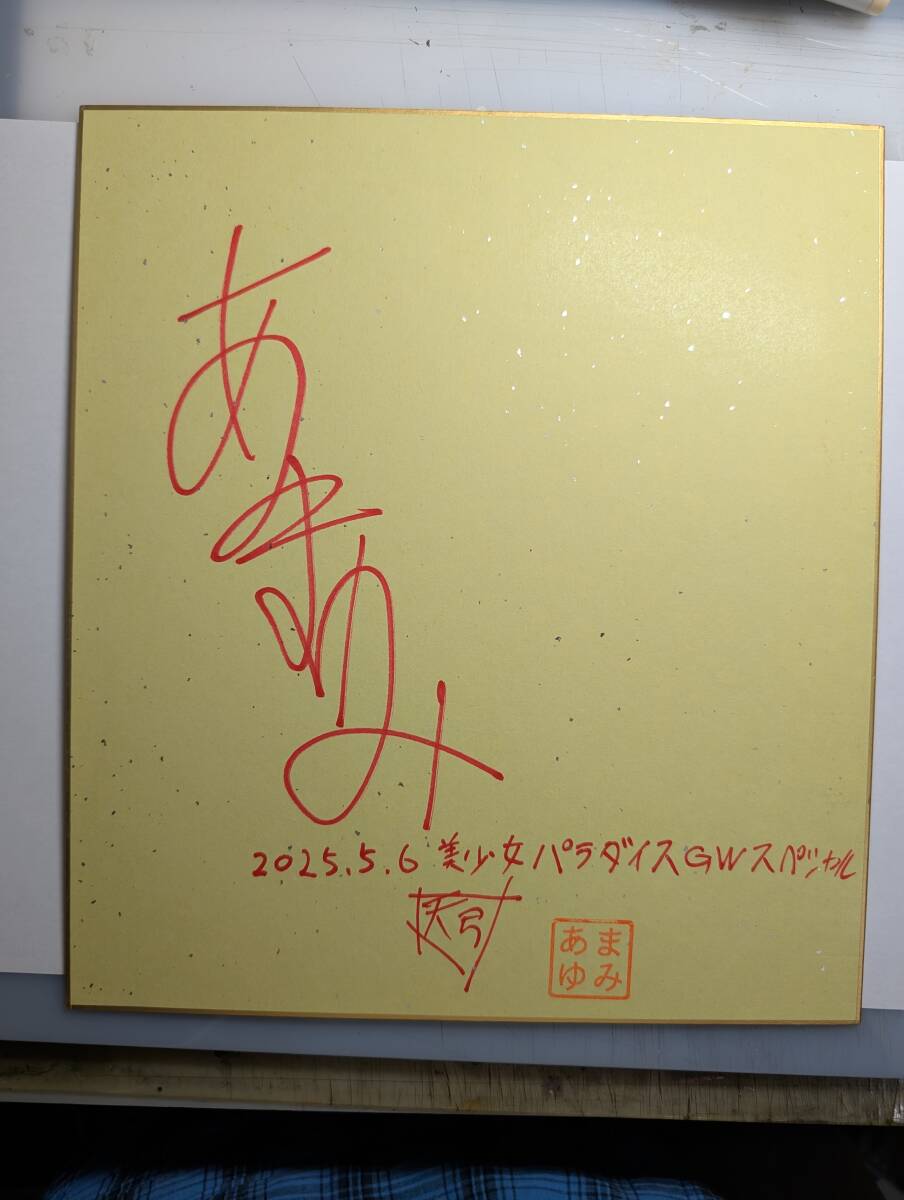 あまゆみ
2025.5.6 美少女パラダイスGWスペシャル
天弓
あま
ゆみ